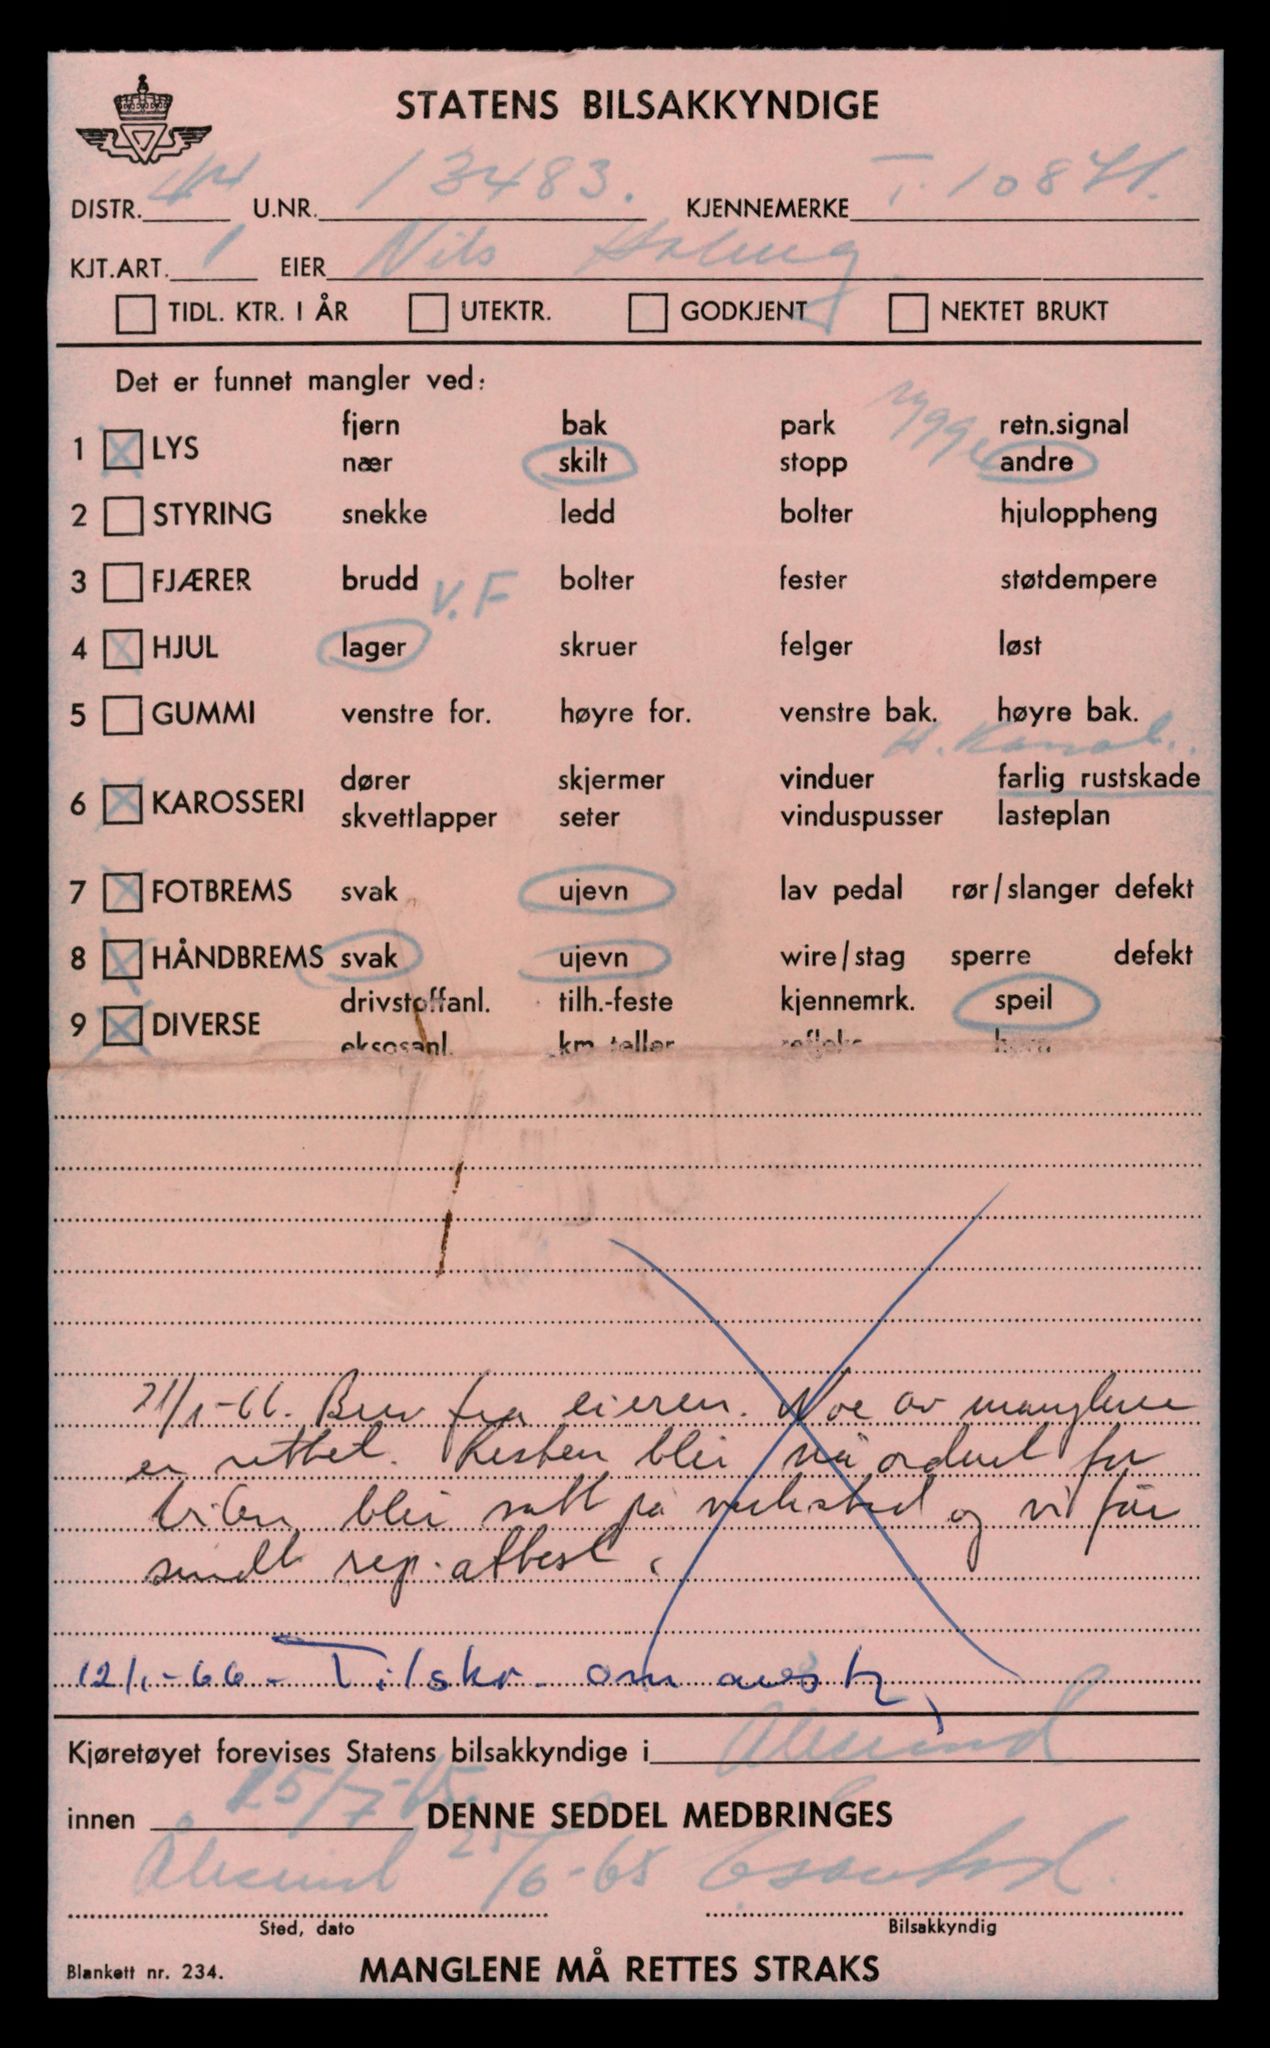 STATENS BILSAKKYNDIGE
DISTR. 44 U.NR. 13483. KJENNEMERKE T. 10871.
KJT.ART. 1 EIER Nils
TIDL. KTR. I ÅR UTEKTR. GODKJENT NEKTET BRUKT
Det er funnet mangler ved:
rygge
fjern bak park retn.signal
1 LYS
nær skilt stopp andre
2 STYRING snekke ledd bolter hjuloppheng
3 FJÆRER brudd bolter fester støtdempere
V. F
4 HJUL lager skruer felger løst
5 GUMMI venstre for. høyre for. venstre bak. høyre bak.
H. Kanal.
dører skjermer vinduer farlig rustskade
6 KAROSSERI
skvettlapper seter vinduspusser lasteplan
7 FOTBREMS svak ujevn lav pedal rør/slanger defekt
8 HÅNDBREMS svak ujevn wire/stag sperre defekt
drivstoffanl. tilh.-feste kjennemrk. speil
9 DIVERSE
eksosanl. km teller refleks horn
21/1-66. Brev fra eieren. Noe av manglene
er rettet. Resten blir nå ordnet for
bilen blir satt på verksted og vi får
sendt rep. attest.
12/1-66 - Tilskr. om
Kjøretøyet forevises Statens bilsakkyndige i Ålesund
innen 25/7-65. DENNE SEDDEL MEDBRINGES
Ålesund 25/6-65
Sted, dato Bilsakkyndig
Blankett nr. 234. MANGLENE MÅ RETTES STRAKS